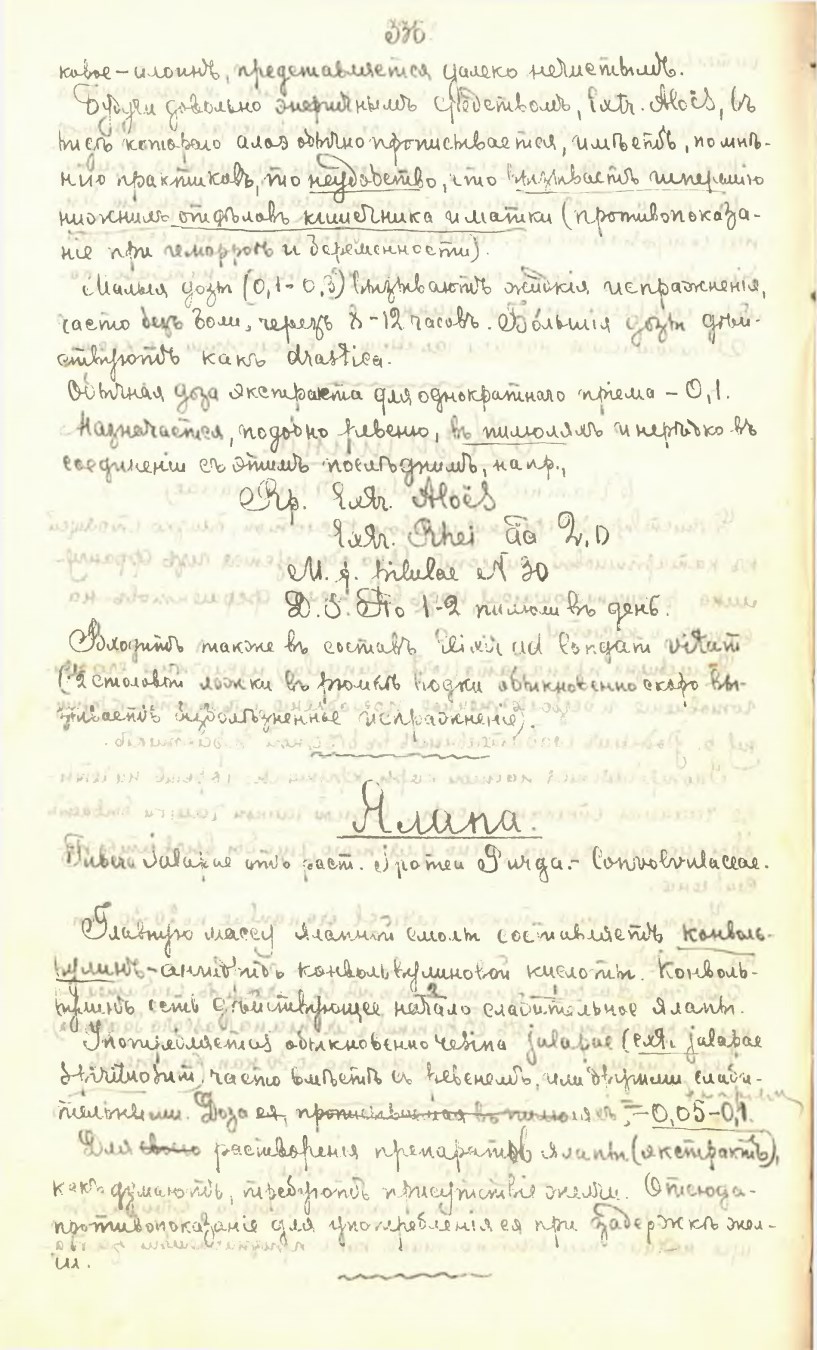 336
ковое – илоинъ, представляется далеко нечистымъ.
Будучи довольно энергичнымъ средствомъ, Extr. Aloës, въ
видѣ котораго алоэ обычно прописывается, имѣетъ, по мнѣ-
нію практиковъ, то неудобство, что вызываетъ гиперемію
нижнихъ отдѣловъ кишечника и матки (противопоказа-
ніе при гемороѣ и беременности).
Малыя дозы (0,1 - 0,3) вызываютъ жидкія испражненія,
часто безъ боли, черезъ 8 - 12 часовъ. Бо́льшія дозы дѣй-
ствуютъ какъ drastica.
Обычная доза экстракта для однократнаго пріема – 0,1.
Назначается, подобно ревеню, въ пилюляхъ и нерѣдко въ
соединеніи съ этимъ послѣднимъ, напр.,
Rp. Extr. Aloës
Extr. Rhei āā 2,0
M. f. pilulae N 30
D. S. По 1-2 пилюли въ день.
Входитъ также въ составъ Elixir ad longam vitam
(1/2 столовой ложки въ рюмкѣ водки обыкновенно скоро вы-
зываетъ безболѣзненное испражненіе).
Ялапа.
Tubera Jalapae отъ раст. Ipomea Purga. – Convolvulaceae.
Главную массу ялапной смолы составляетъ конволь-
вулинъ – ангидридъ конвольвулиновой кислоты. Конволь-
вулинъ есть дѣйствующее начало слабительное ялапы.
Употребляется обыкновенно resina jalapae (extr. jalapae
spirituosum), часто вмѣстѣ съ ревенемъ, или другими слаби-
тельными. Доза ея, прописываемая въ пилюляхъ, – 0,05–0,1.
Для своего растворенія препараты ялапы (экстрактъ),
какъ думаютъ, требуютъ присутствіе желчи. Отсюда -
противопоказаніе для употребленія ея при задержкѣ жел-
чи.